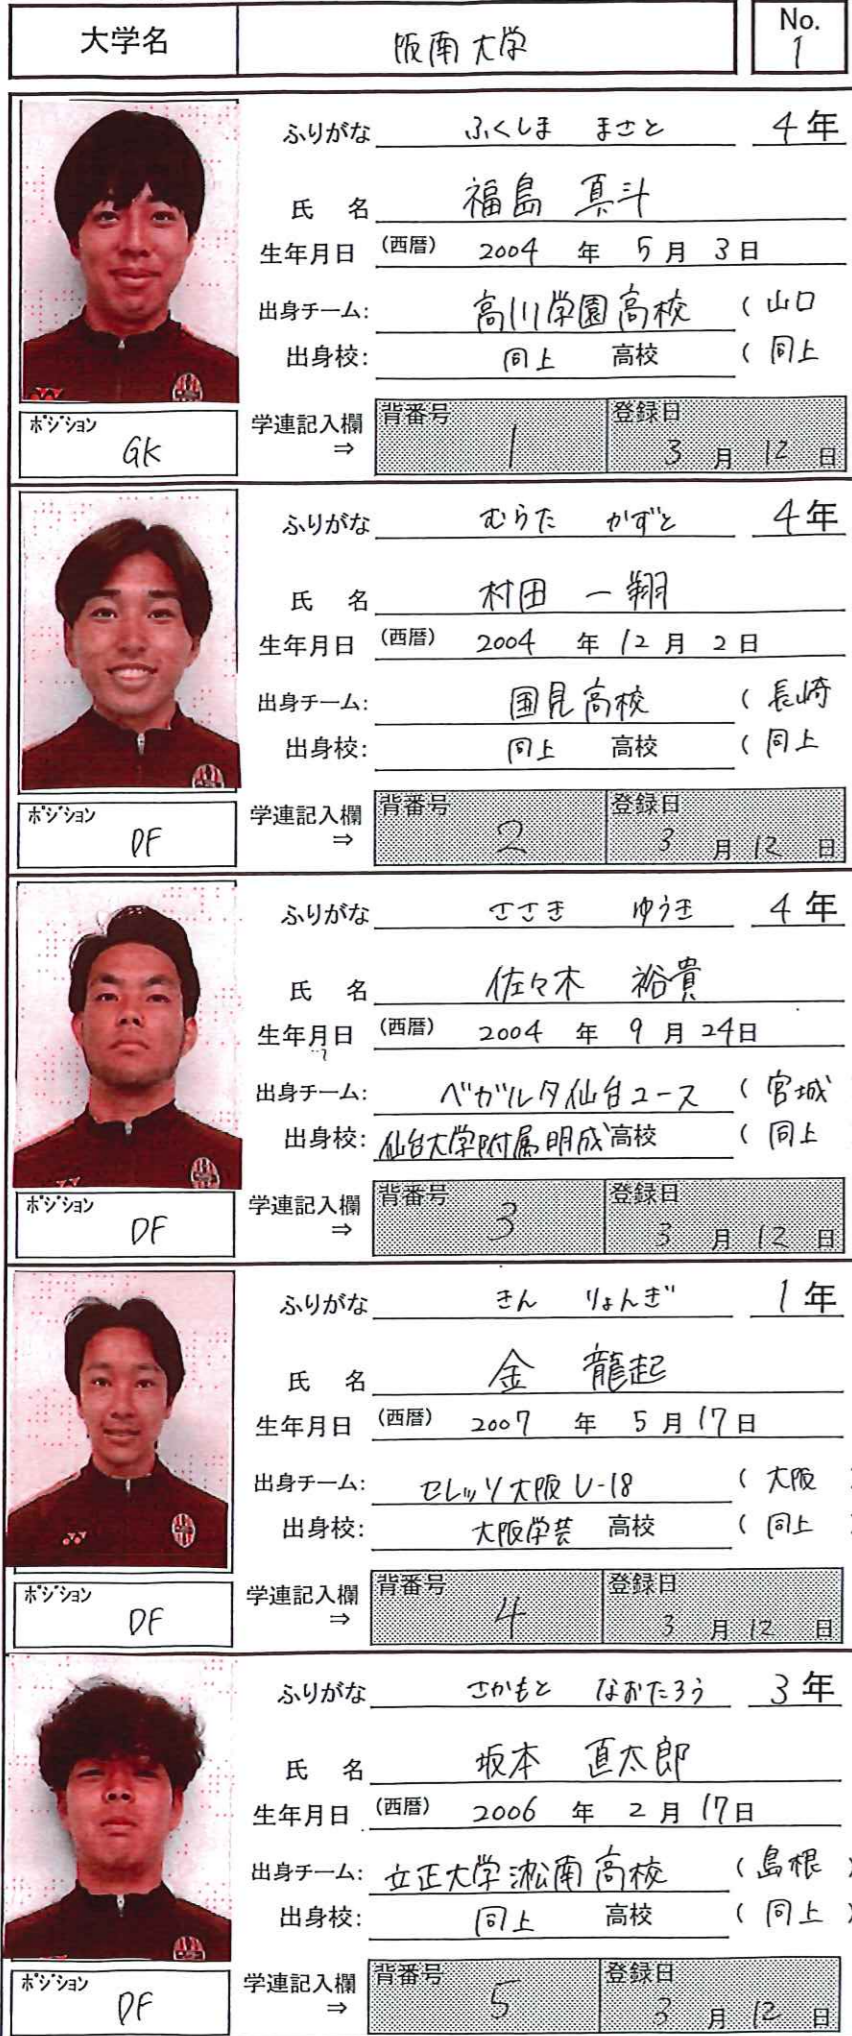 大学名 阪南大学 No. 1
ふりがな ふくしま まさと 4年
氏 名 福島 真斗
生年月日 (西暦) 2004 年 5月 3日
出身チーム: 高川学園高校 (山口
出身校: 同上 高校 (同上
ポジション GK 学連記入欄 ⇒ 背番号 1 登録日 3 月 12 日
ふりがな むらた かずと 4年
氏 名 村田 一翔
生年月日 (西暦) 2004 年 12月 2日
出身チーム: 国見高校 (長崎
出身校: 同上 高校 (同上
ポジション DF 学連記入欄 ⇒ 背番号 2 登録日 3 月 12 日
ふりがな ささき ゆうき 4年
氏 名 佐々木 裕貴
生年月日 (西暦) 2004 年 9月 24日
出身チーム: ベガルタ仙台ユース (宮城
出身校: 仙台大学附属明成高校 (同上
ポジション DF 学連記入欄 ⇒ 背番号 3 登録日 3 月 12 日
ふりがな きん りょんぎ 1年
氏 名 金 龍起
生年月日 (西暦) 2007 年 5月 17日
出身チーム: セレッソ大阪 U-18 (大阪
出身校: 大阪学芸 高校 (同上
ポジション DF 学連記入欄 ⇒ 背番号 4 登録日 3 月 12 日
ふりがな さかもと なおたろう 3年
氏 名 坂本 直太郎
生年月日 (西暦) 2006 年 2月 17日
出身チーム: 立正大学淞南高校 (島根)
出身校: 同上 高校 (同上)
ポジション DF 学連記入欄 ⇒ 背番号 5 登録日 3 月 12 日